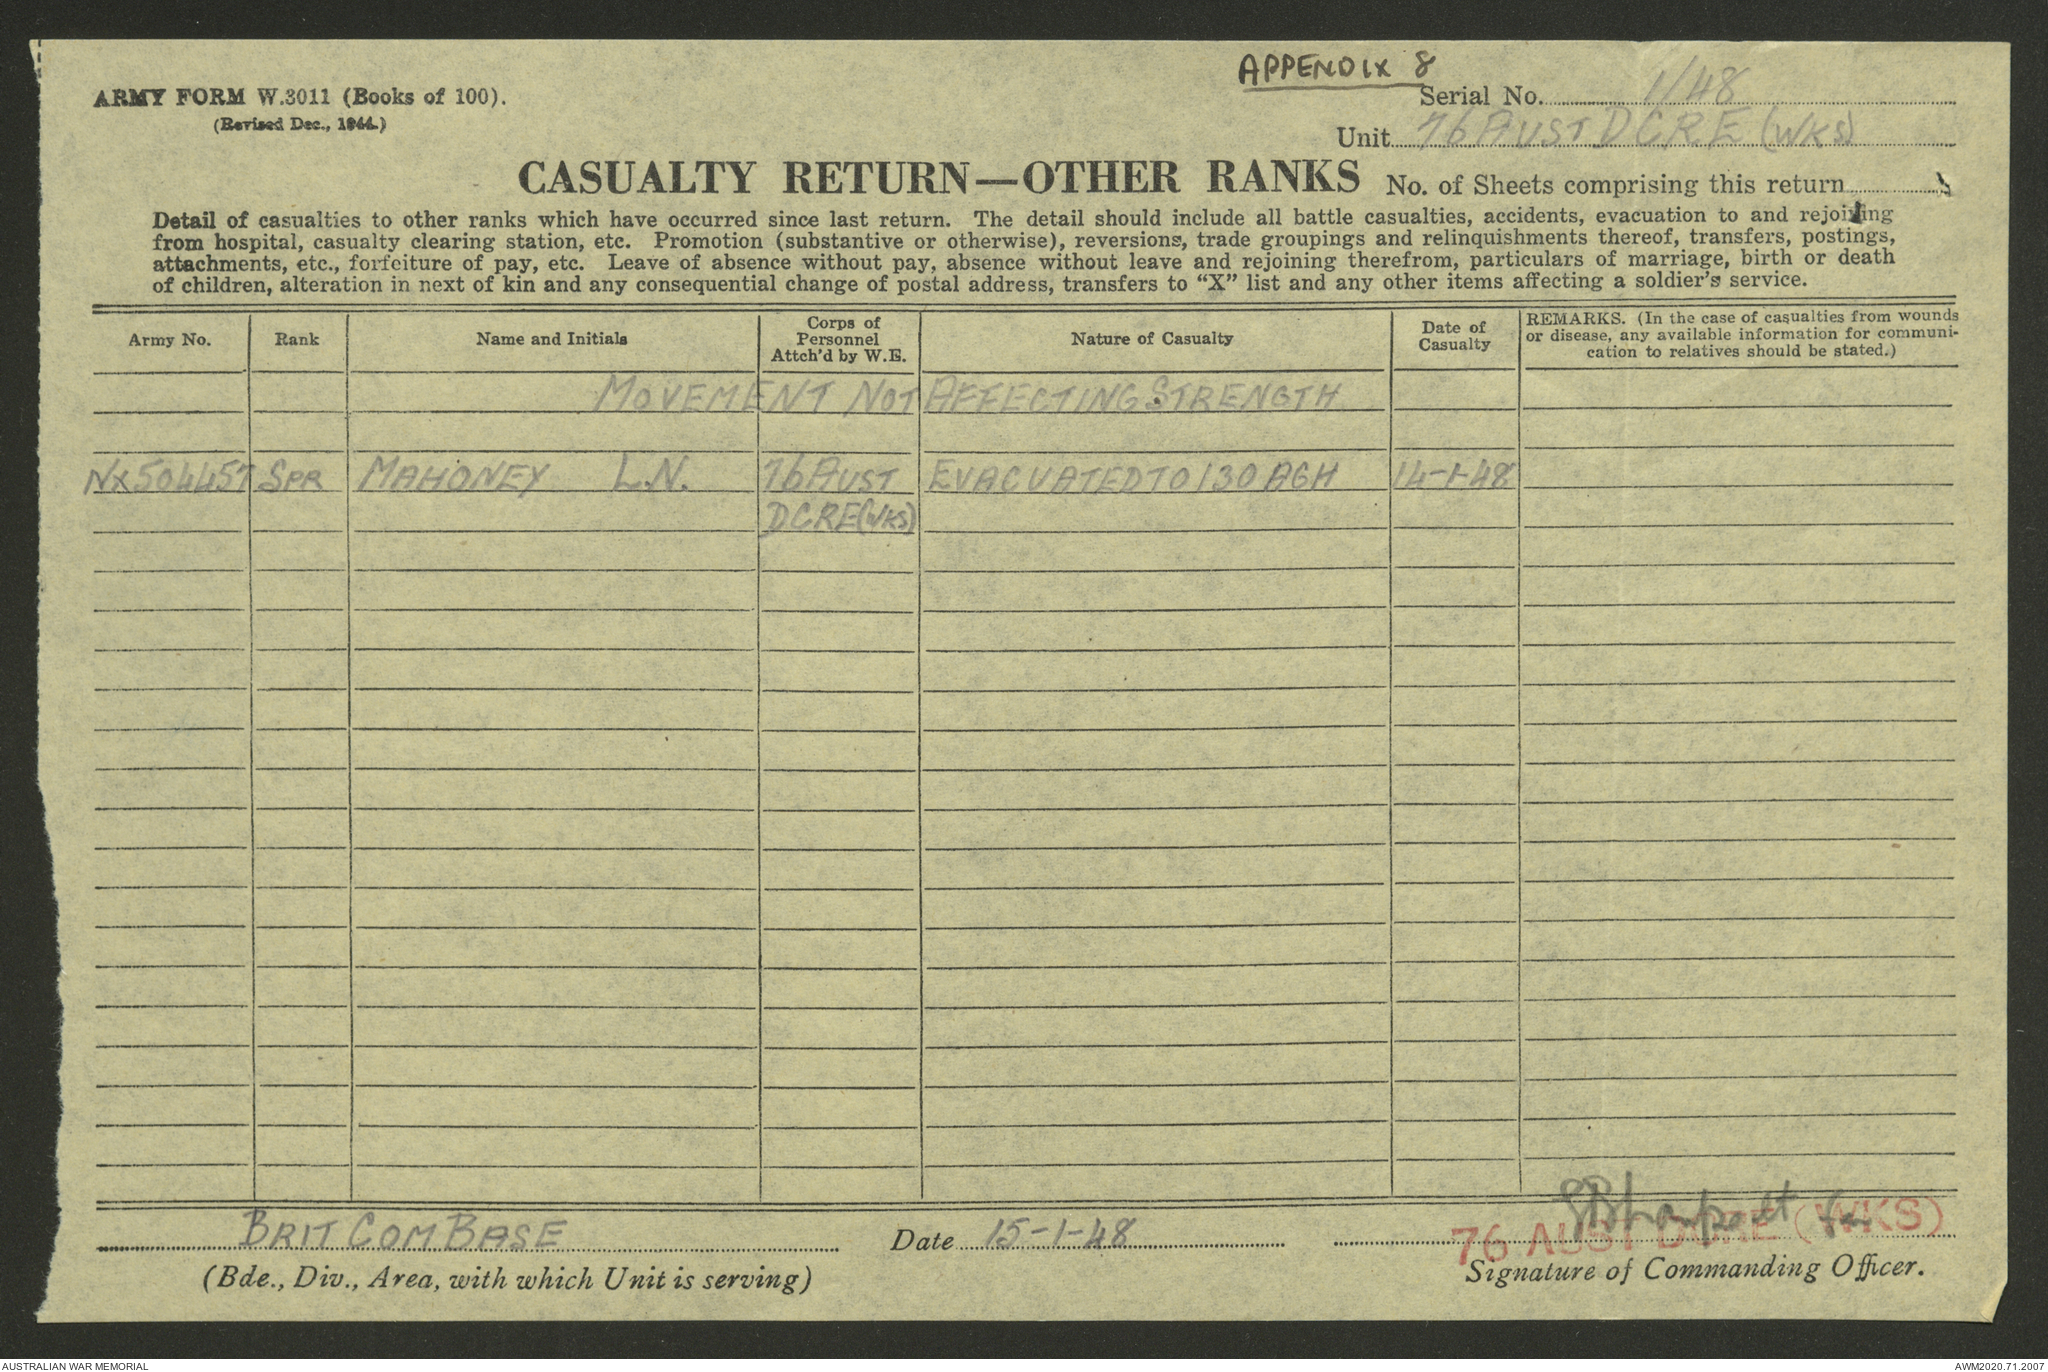 APPENDIX 8
ARMY FORM W.3011 (Books of 100).
(Revised Dec., 1944.)
Serial No. 1/48
Unit 76 AUST DCRE (WKS)
CASUALTY RETURN—OTHER RANKS No. of Sheets comprising this return
Detail of casualties to other ranks which have occurred since last return. The detail should include all battle casualties, accidents, evacuation to and rejoining
from hospital, casualty clearing station, etc. Promotion (substantive or otherwise), reversions, trade groupings and relinquishments thereof, transfers, postings,
attachments, etc., forfeiture of pay, etc. Leave of absence without pay, absence without leave and rejoining therefrom, particulars of marriage, birth or death
of children, alteration in next of kin and any consequential change of postal address, transfers to "X" list and any other items affecting a soldier's service.
Army No. Rank Name and Initials Corps of Personnel Attch'd by W.E. Nature of Casualty Date of Casualty REMARKS. (In the case of casualties from wounds or disease, any available information for communication to relatives should be stated.)
MOVEMENT NOT AFFECTING STRENGTH
NX504457 SPR MAHONEY L.N. 76 AUST EVACUATED TO 130 AGH 14-1-48
DCRE (WKS)
BRIT COM BASE Date 15-1-48
76 AUST DCRE (WKS)
(Bde., Div., Area, with which Unit is serving) Signature of Commanding Officer.
AUSTRALIAN WAR MEMORIAL AWM2020.71.2007